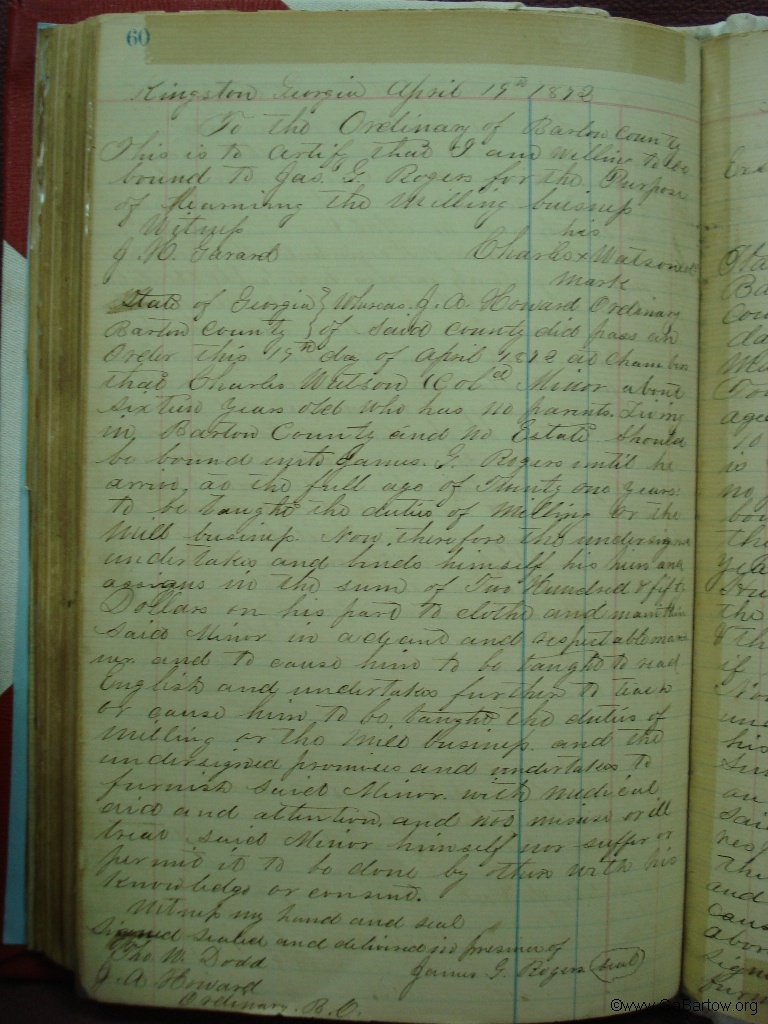 60
Kingston Georgia April 19th 1892
To the Ordinary of Bartow County
This is to certify that I am willing to be
bound to Jas. G. Rogers for the Purpose
of learning the Milling business
Witness his
J. W. Garard Charles x Watson
mark
State of Georgia } Whereas J. A. Howard Ordinary
Bartow County } of said county did pass an
Order this 19th day of April 1892 at Chambers
that Charles Watson (Cold Minor about
sixteen years old who has no parents living
in Bartow County and no Estate should
be bound unto James. G. Rogers until he
arrive at the full age of Twenty one years:
to be taught the duties of Milling or the
Mill business. Now therefore the undersigned
undertakes and binds himself, his heirs and
assigns in the sum of Two Hundred & fifty
Dollars on his part to clothe and maintain
said Minor in a decent and respectable man
ner and to cause him to be taught to read
English and undertakes further to teach
or cause him to be taught the duties of
Milling or the Mill business. and the
undersigned promises and undertakes to
furnish said Minor with medical
aid and attention. and not misuse or ill
treat said Minor himself nor suffer or
permit it to be done by others with his
knowledge or consent.
Witness my hand and seal
Signed sealed and delivered in presence of
Tho W. Dodd James G. Rogers (seal)
J. A Howard
Ordinary. B. C.
©www.GaBartow.org